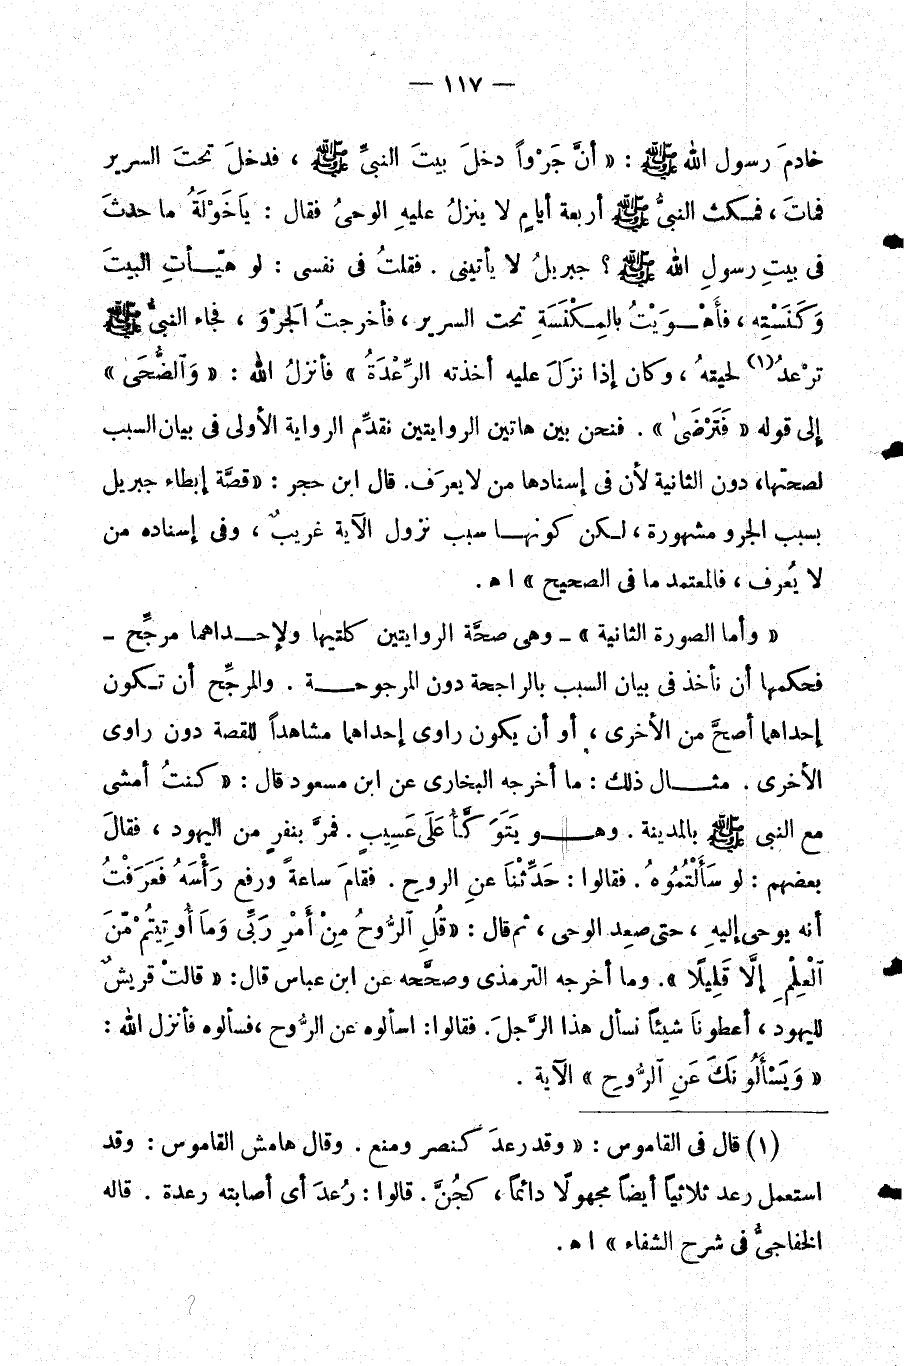 — ١١٧ —
خادمَ رسول الله ﷺ : « أنَّ جَرْواً دخلَ بيتَ النبيِّ ﷺ ، فدخلَ تحتَ السرير
فماتَ ، فمـكث النبيُّ ﷺ أربعة أيامٍ لا ينزلُ عليهِ الوحىُ فقال : يَاخَوْلَةُ ما حدثَ
فى بيتِ رسولِ الله ﷺ ؟ جبريلُ لا يأتينى . فقلتُ فى نفسى : لو هيّـأتِ البيتَ
وَكَنَسْتِهِ ، فأَهْـوَيْتُ بالمِـكْنَسَةِ تحت السرير ، فأخرجتُ الجرْوَ ، فجاء النبىُّ ﷺ
ترْعدُ(١) لحيتهُ ، وكان إذا نزَلَ عليه أخذته الرِّعْدَةُ » فأنزلُ اللهُ : « وَٱلضُّحَىٰ »
إلى قوله « فَتَرْضَىٰ » . فنحن بين هاتين الروايتين نقدِّم الرواية الأولى فى بيان السبب
لصحتها، دون الثانية لأن فى إسنادها من لا يعرَف. قال ابن حجر : «قصَّة إبطاء جبريل
بسبب الجرو مشهورة ، لـكن كونهـا سبب نزول الآية غريبٌ ، وفى إسناده من
لا يُعرف ، فالمعتمد ما فى الصحيح » ا ه .
« وأما الصورة الثانية » ـ وهى صحَّة الروايتين كلتيها ولإحـداهما مرجِّح ـ
فحكمها أن نأخذ فى بيان السبب بالراجحة دون المرجوحـة . والمرجِّح أن تـكون
إحداهما أصحَّ من الأخرى ، أو أن يكون راوى إحداهما مشاهداً للقصة دون راوى
الأخرى . مثـال ذلك : ما أخرجه البخارى عن ابن مسعود قال : « كنتُ أمشى
مع النبى ﷺ بالمدينة . وهـو يَتَوَ كَّأُ عَلَى عَسِيبٍ . فمرَّ بنفرٍ من اليهود ، فقالَ
بعضهم : لو سَأَلْتُمُوهُ . فقالوا : حَدِّثْنَا عنِ الروحِ . فقامَ ساعةً ورفع رَأْسَهُ فَعَرَفْتُ
أنه يوحى إليهِ ، حتى صعِد الوحى ، ثم قال : «قُلِ ٱلرُّوحُ مِنْ أَمْرِ رَبِّى وَمَا أُوتِيتُمْ مِّنَ
ٱلْعِلْمِ إِلَّا قَلِيلًا ». وما أخرجه الترمذى وصحَّحه عن ابن عباس قال: « قالتْ قريشٌ
لليهود ، أعطونَا شيئاً نسأل هذا الرَّجلَ. فقالوا: اسألوه عن الرُّوح ،فسألوه فأنزل الله :
« وَيَسْأَلُونَكَ عَنِ ٱلرُّوحِ » الآية .
(١) قال فى القاموس : « وقد رعدَ كنصر ومنع . وقال هامش القاموس : وقد
استعمل رعد ثلاثياً أيضاً مجهولًا دائماً ، كَجُنَّ . قالوا : رُعدَ أى أصابته رعدة . قاله
الخفاجىُّ فى شرح الشفاء » ا ه .